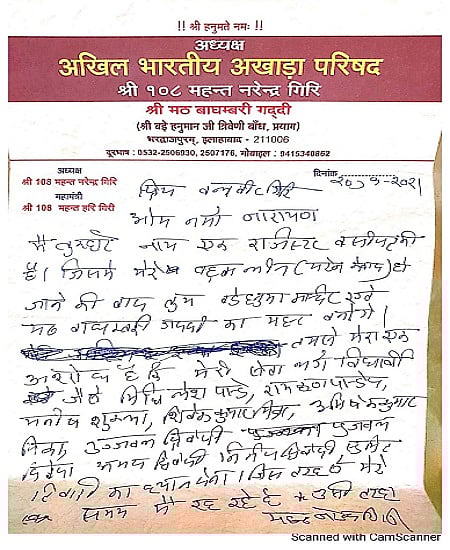 !! श्री हनुमते नमः !!
अध्यक्ष
अखिल भारतीय अखाड़ा परिषद
श्री १०८ महन्त नरेन्द्र गिरि
श्री मठ बाघम्बरी गद्दी
(श्री बड़े हनुमान जी त्रिवेणी बाँध, प्रयाग)
भरद्वाजपुरम्, इलाहाबाद - 211006
दूरभाष : 0532-2506930, 2507176, मोबाइल : 9415340862
अध्यक्ष
श्री 108 महन्त नरेन्द्र गिरि
महामंत्री
श्री 108 महन्त हरि गिरी
दिनांक
प्रिय बलवीर गिरि
ओम नमो नारायण
मै तुम्हारे नाम एक रजिस्टर वसीयत की
है। जिसमे मेरे
जाने की बाद तुम बडे हनुमान मन्दिर एवं
मठ बाघम्बरी गद्दी का महन्त बनोगे।
तुमसे मेरा एक
है कि मेरी सेवा में विद्यार्थी
जैसे मिथिलेश पाण्डे, रामकृष्ण पाण्डेय,
मनीष शुक्ला, शिवेक कुमार मिश्रा, अभिषेक कुमार
मिश्रा, उज्जवल द्विवेदी प्रज्जवल
द्विवेदी अभय द्विवेदी निर्भय द्विवेदी, सुमित
तिवारी का ध्यान देना। जिस तरह से मेरे
समय में रह रहे है उसी तरह
Scanned with CamScanner